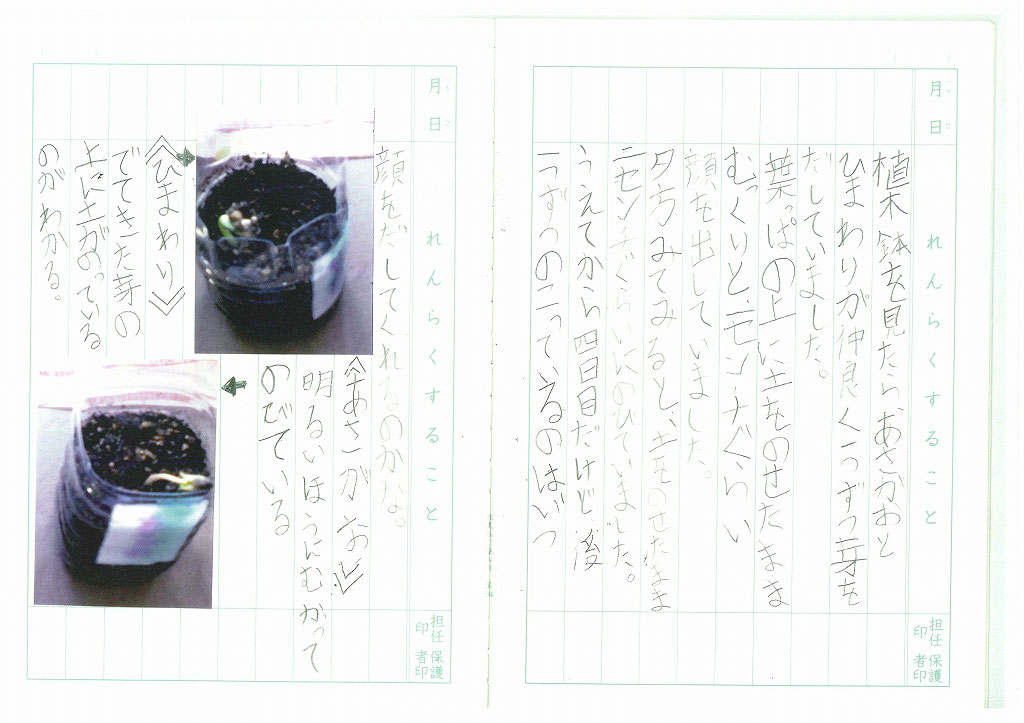 月 日
れんらくすること
担任印
保護者印
植木鉢を見たらあさがおと
ひまわりが仲良く一つずつ芽を
だしていました。
葉っぱの上に土をのせたまま
むっくりと、一センチぐらい
顔を出していました。
夕方みてみると、土をのせたまま
二センチぐらいにのびていました。
うえてから四日目だけど、後
一つずつのこっているのはいつ
月 日
れんらくすること
担任印
保護者印
顔をだしてくれるのかな。
《ひまわり》
でてきた芽の
上に土がのっている
のがわかる。
《あさがお》
明るいほうにむかって
のびている